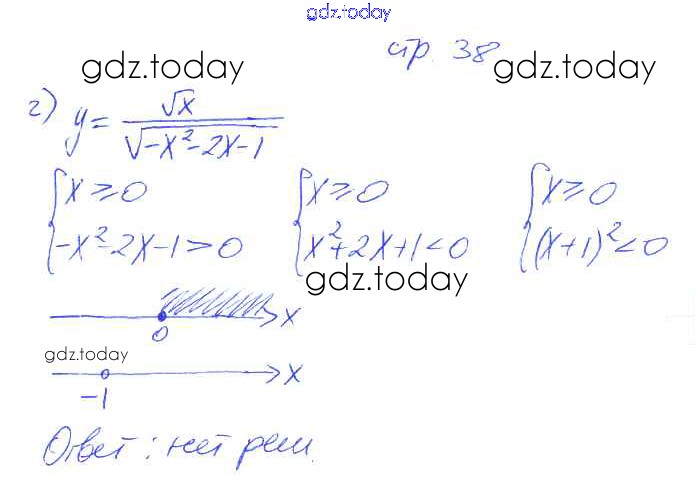 gdz.today
стр. 38
gdz.today gdz.today
г) y = √x / √(-x² - 2x - 1)
{ x ≥ 0 { x ≥ 0 { x ≥ 0
{ -x² - 2x - 1 > 0 { x² + 2x + 1 < 0 { (x + 1)² < 0
gdz.today
0 x
gdz.today
-1 x
Ответ: нет реш.